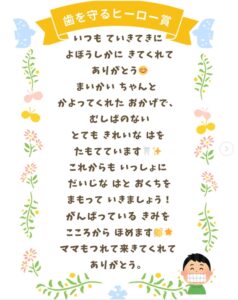 歯を守るヒーロー賞
いつも ていきてきに
よぼうしかに きてくれて
ありがとう😊
まいかい ちゃんと
かよってくれた おかげで、
むしばのない
とても きれいな はを
たもてています🦷✨
これからも いっしょに
だいじな はと おくちを
まもって いきましょう！
がんばっている きみを
こころから ほめます👏⭐
ママもつれて来きてくれて
ありがとう。